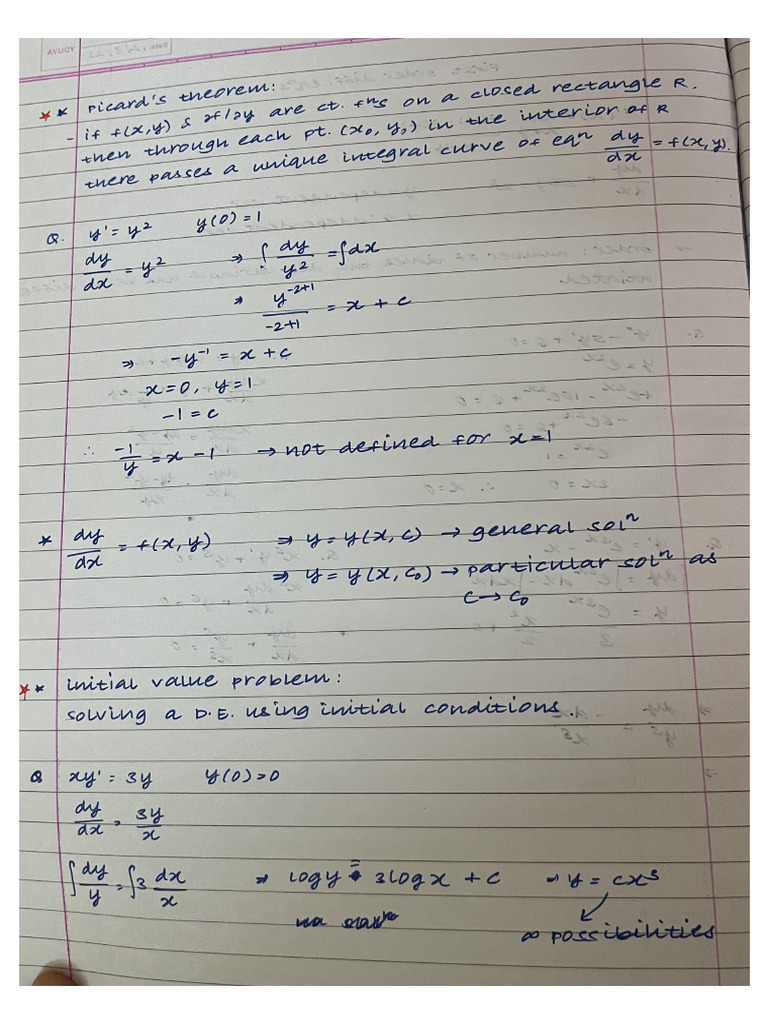 ** Picard's theorem:
- if f(x,y) & ∂f/∂y are ct. fns on a closed rectangle R.
then through each pt. (x₀, y₀) in the interior of R
there passes a unique integral curve of eqⁿ dy/dx = f(x,y).
Q. y' = y² y(0) = 1
dy/dx = y² ⇒ ∫ dy/y² = ∫dx
⇒ y⁻²⁺¹/-2+1 = x + c
⇒ -y⁻¹ = x + c
x=0, y=1
-1 = c
∴ -1/y = x - 1 → not defined for x=1
* dy/dx = f(x,y) ⇒ y = y(x, c) → general solⁿ
⇒ y = y(x, c₀) → particular solⁿ as
c → c₀
** initial value problem:
solving a D.E. using initial conditions.
Q xy' = 3y y(0) = 0
dy/dx = 3y/x
∫ dy/y = ∫3 dx/x ⇒ log y = 3log x + c → y = cx³
∞ possibilities